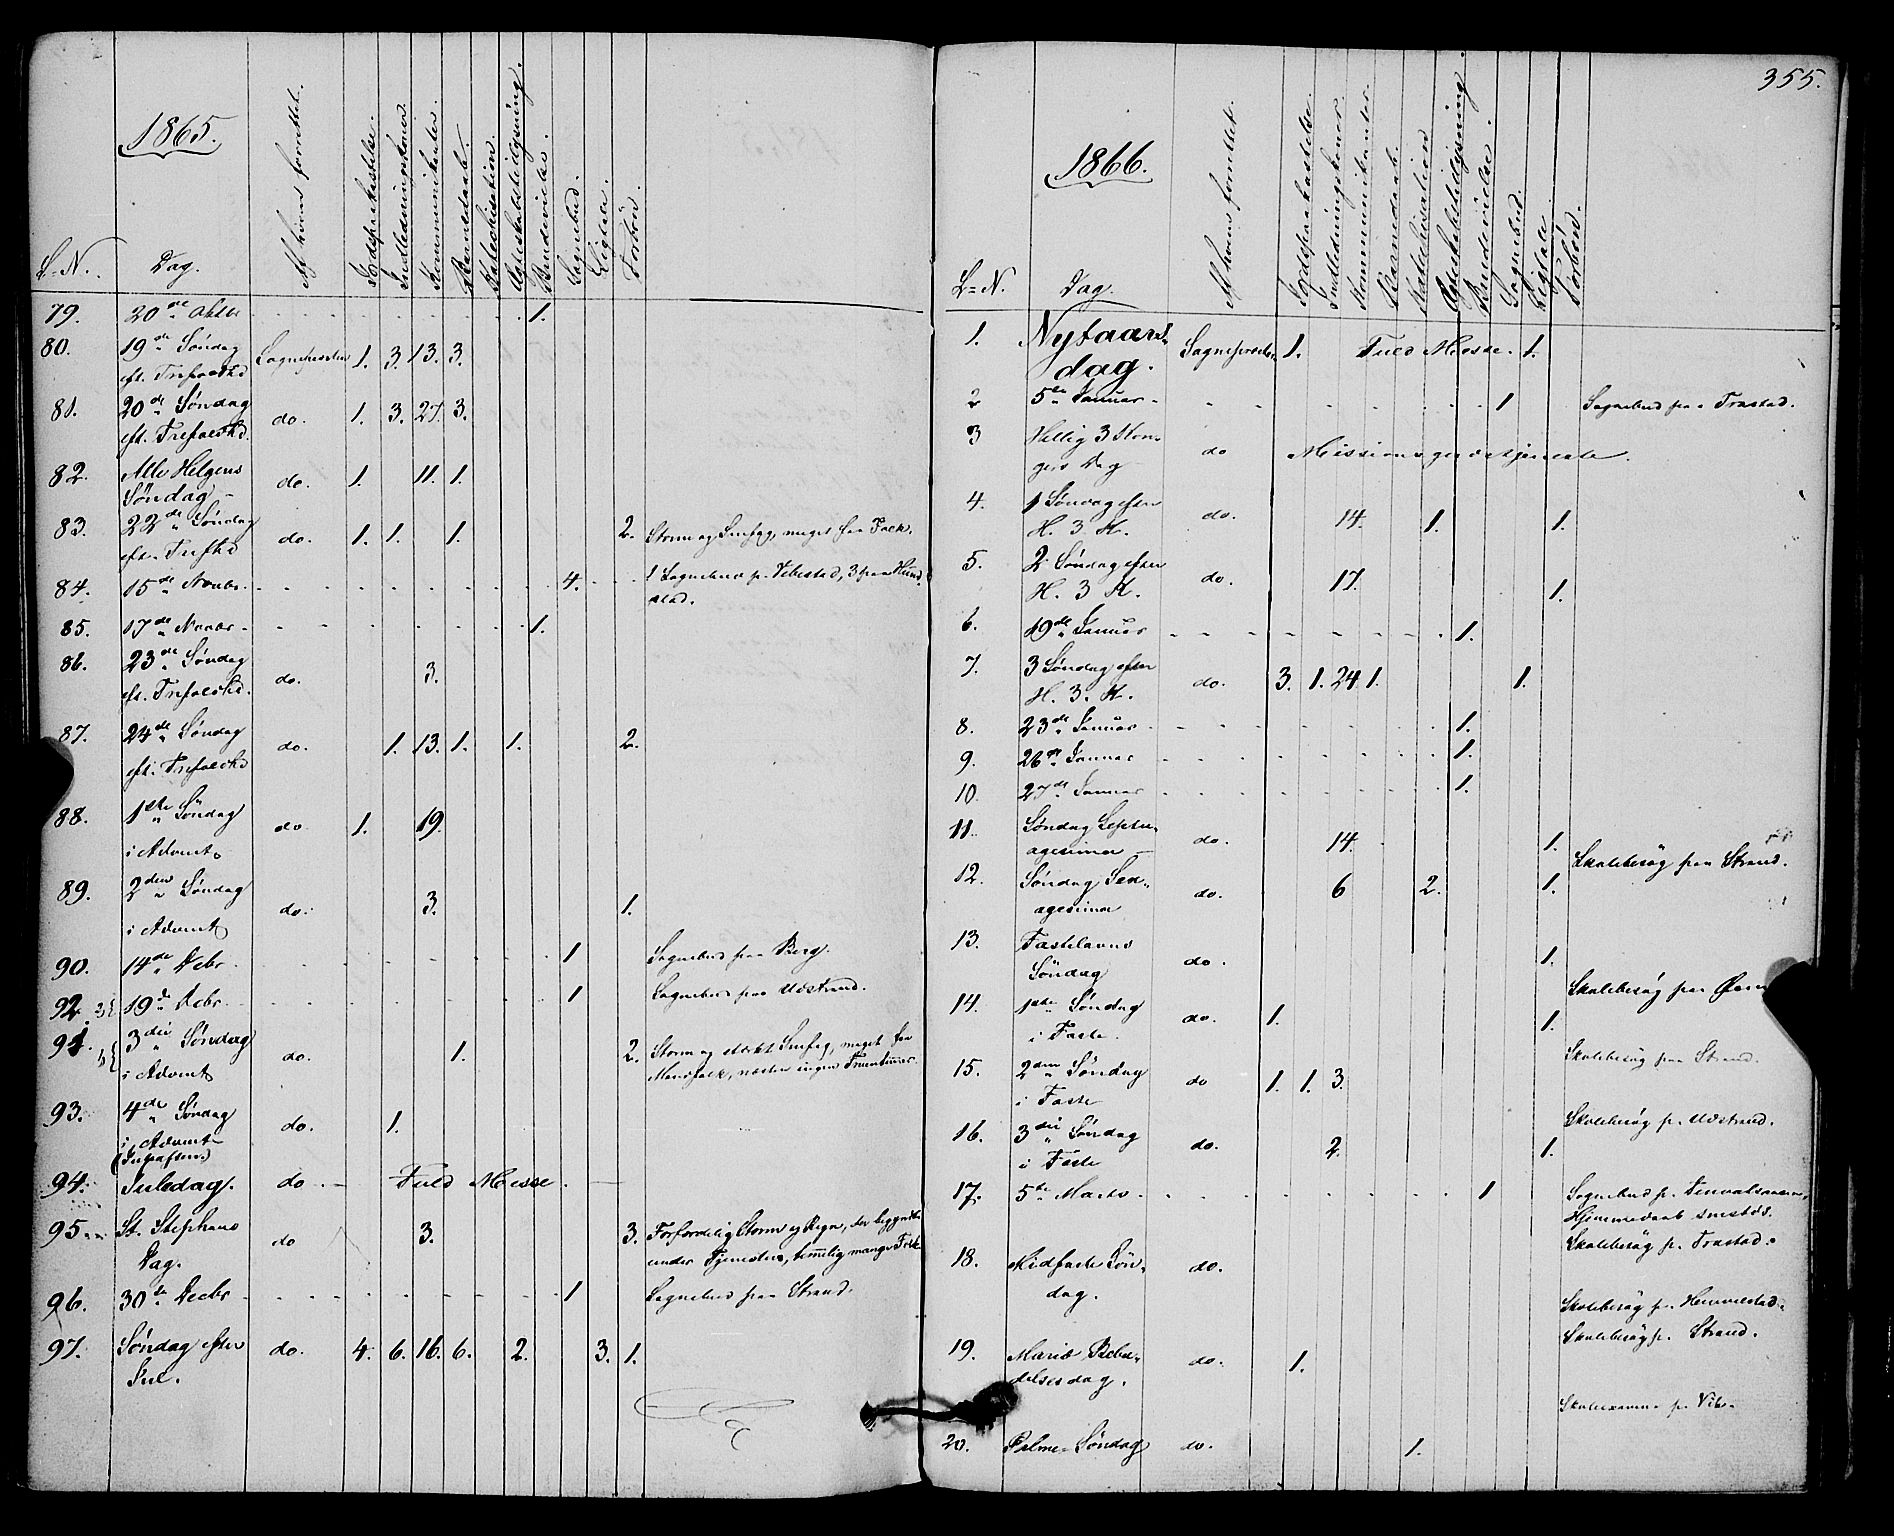 1865.
L-N.
Dag.
Af hvem forrettet.
Jordspaakastelse.
Indledningskoner.
Kommunikanter.
Barnedaab.
Katechisation.
Ægteskabstillysning.
Brudevielse.
Sognebud.
Ligtale.
Forbön.
79. 20de Oktbr 1.
80. 19de Søndag Sognepresten 1. 3. 13. 3.
eft. Trefoldhd
81. 20de Søndag do. 1. 3. 27. 3.
eft. Trefoldhd.
82. Alle Helgens do. 1. 11. 1.
Söndag -
83. 22de Söndag do. 1. 1. 1. 2. Storm og Snefog, meget faa Folk.
eft. Trefhd
84. 15de Novbr. 4. 1 Sognebud p. Vebestad, 3 paa Hund-
stad.
85. 17de Novbr - 1.
86. 23de Söndag do. 3.
eft. Trefoldhd.
87. 24de Söndag do. 1. 13. 1. 1. 2.
eft. Trefoldhd
88. 1ste Söndag do. 1. 19.
i Advent
89. 2den Söndag do. 3. 1.
i Advent
90. 14de Decbr. 1 Sognebud paa Berg.
92 19de Decbr. 1 Sognebud paa Udstrand.
91. 3die Søndag do. 1. 2. Storm og stærkt Snefog, meget faa
i Advent Mandfolk, næsten ingen Fruentimer.
93. 4de Söndag do. 1.
i Advent
(Juleaften)
94. Juledag. do. - Fuld Messe.
95. St. Stephans do 3. 3. Forfærdelig Storm og Regn, der begyndte
Dag. under Tjenesten, temmelig mange Folk
96. 30de Decbr 1 Sognebud paa Strand.
97. Søndag efter do. 4. 6. 16. 6. 2. 3. 1.
Jul.
355.
1866.
L=N.
Dag.
Af hvem forrettet.
Jordspaakastelse.
Indledningskoner.
Kommunikanter.
Barnedaab.
Katechisation
Ægteskabstillysning.
Brudevielse.
Sognebud.
Ligtale.
Forbön.
1. Nytaars- Sognepresten 1. Fuld Messe. 1.
dag.
2 5te Januar - 1 Sognebud paa Trastad.
3 Hellig 3 Kon- do Missionsgudstjeneste.
gers Dag
4. 1 Søndag efter do. 14. 1. 1.
H. 3 K.
5. 2 Søndag efter do. 17. 1.
H. 3 K.
6. 19de Januar 1.
7. 3 Søndag efter do. 3. 1. 24. 1. 1.
H. 3. K.
8. 23de Januar 1.
9. 26de Januar 1.
10. 27de Januar 1.
11. Søndag Septu- do. 14. 1.
agesima Skolebesög paa Strand.
12. Søndag Sex- do. 6 2. 1.
agesima
13. Fastelavns do. 1.
Söndag Skolebesög paa
14. 1ste Søndag do. 1. 1.
i Faste. Skolebesög paa Strand.
15. 2den Søndag do 1. 1. 3.
i Faste Skolebesög p. Udstrand.
16. 3die Søndag do. 2. 1.
i Faste
17. 5te Marts. 1 Sognebud p.
Hjemmedaab
Skolebesög p. Trastad.
18. Midfaste Søn- do.
dag. Skolebesög p. Hemmestad.
Skolebesög p. Strand.
19. Mariæ Bebu- do. 1.
delsesdag.
p. Vik.
20. Palme-Søndag do. 1.